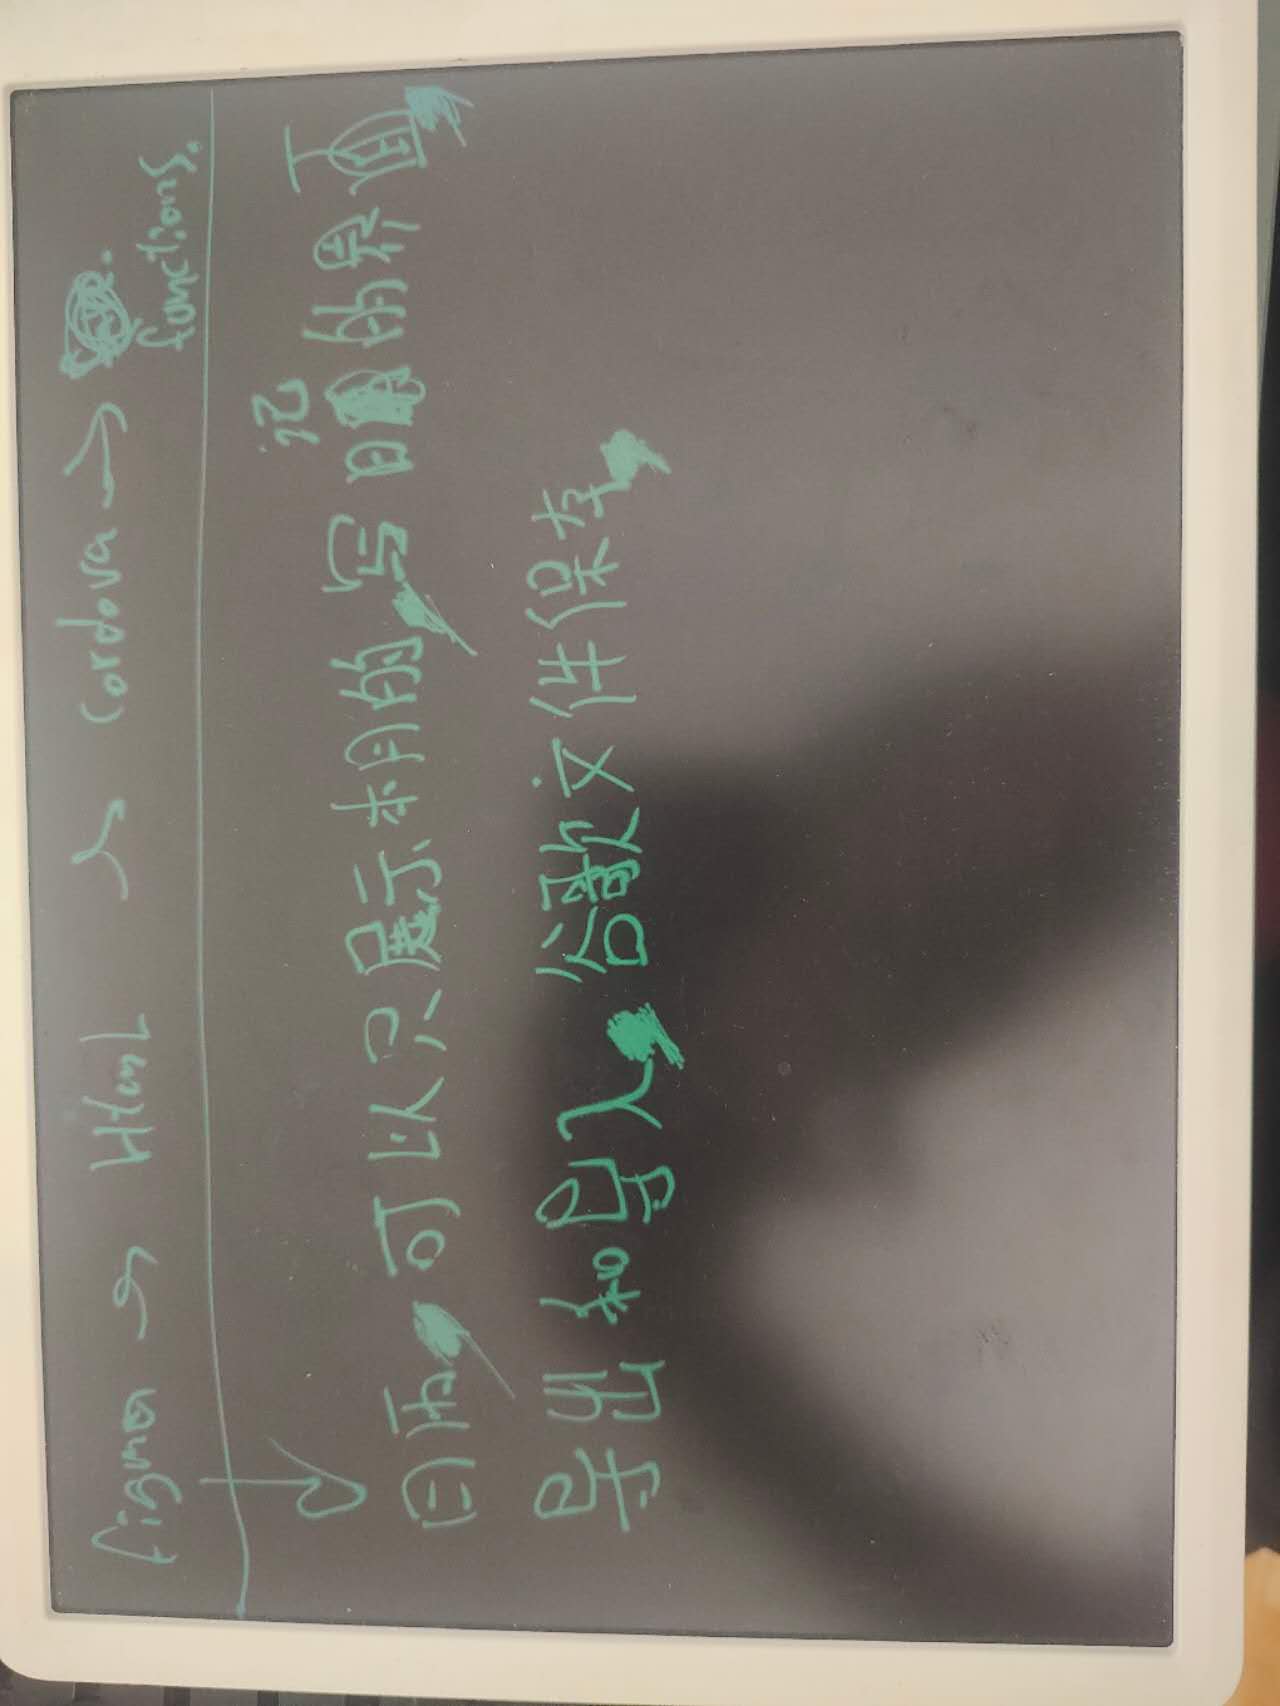 figma → Html → Cordova →
functions.
记
日历，可以只展示相的，写日的累直
导出和导入，谷歌文件保存，